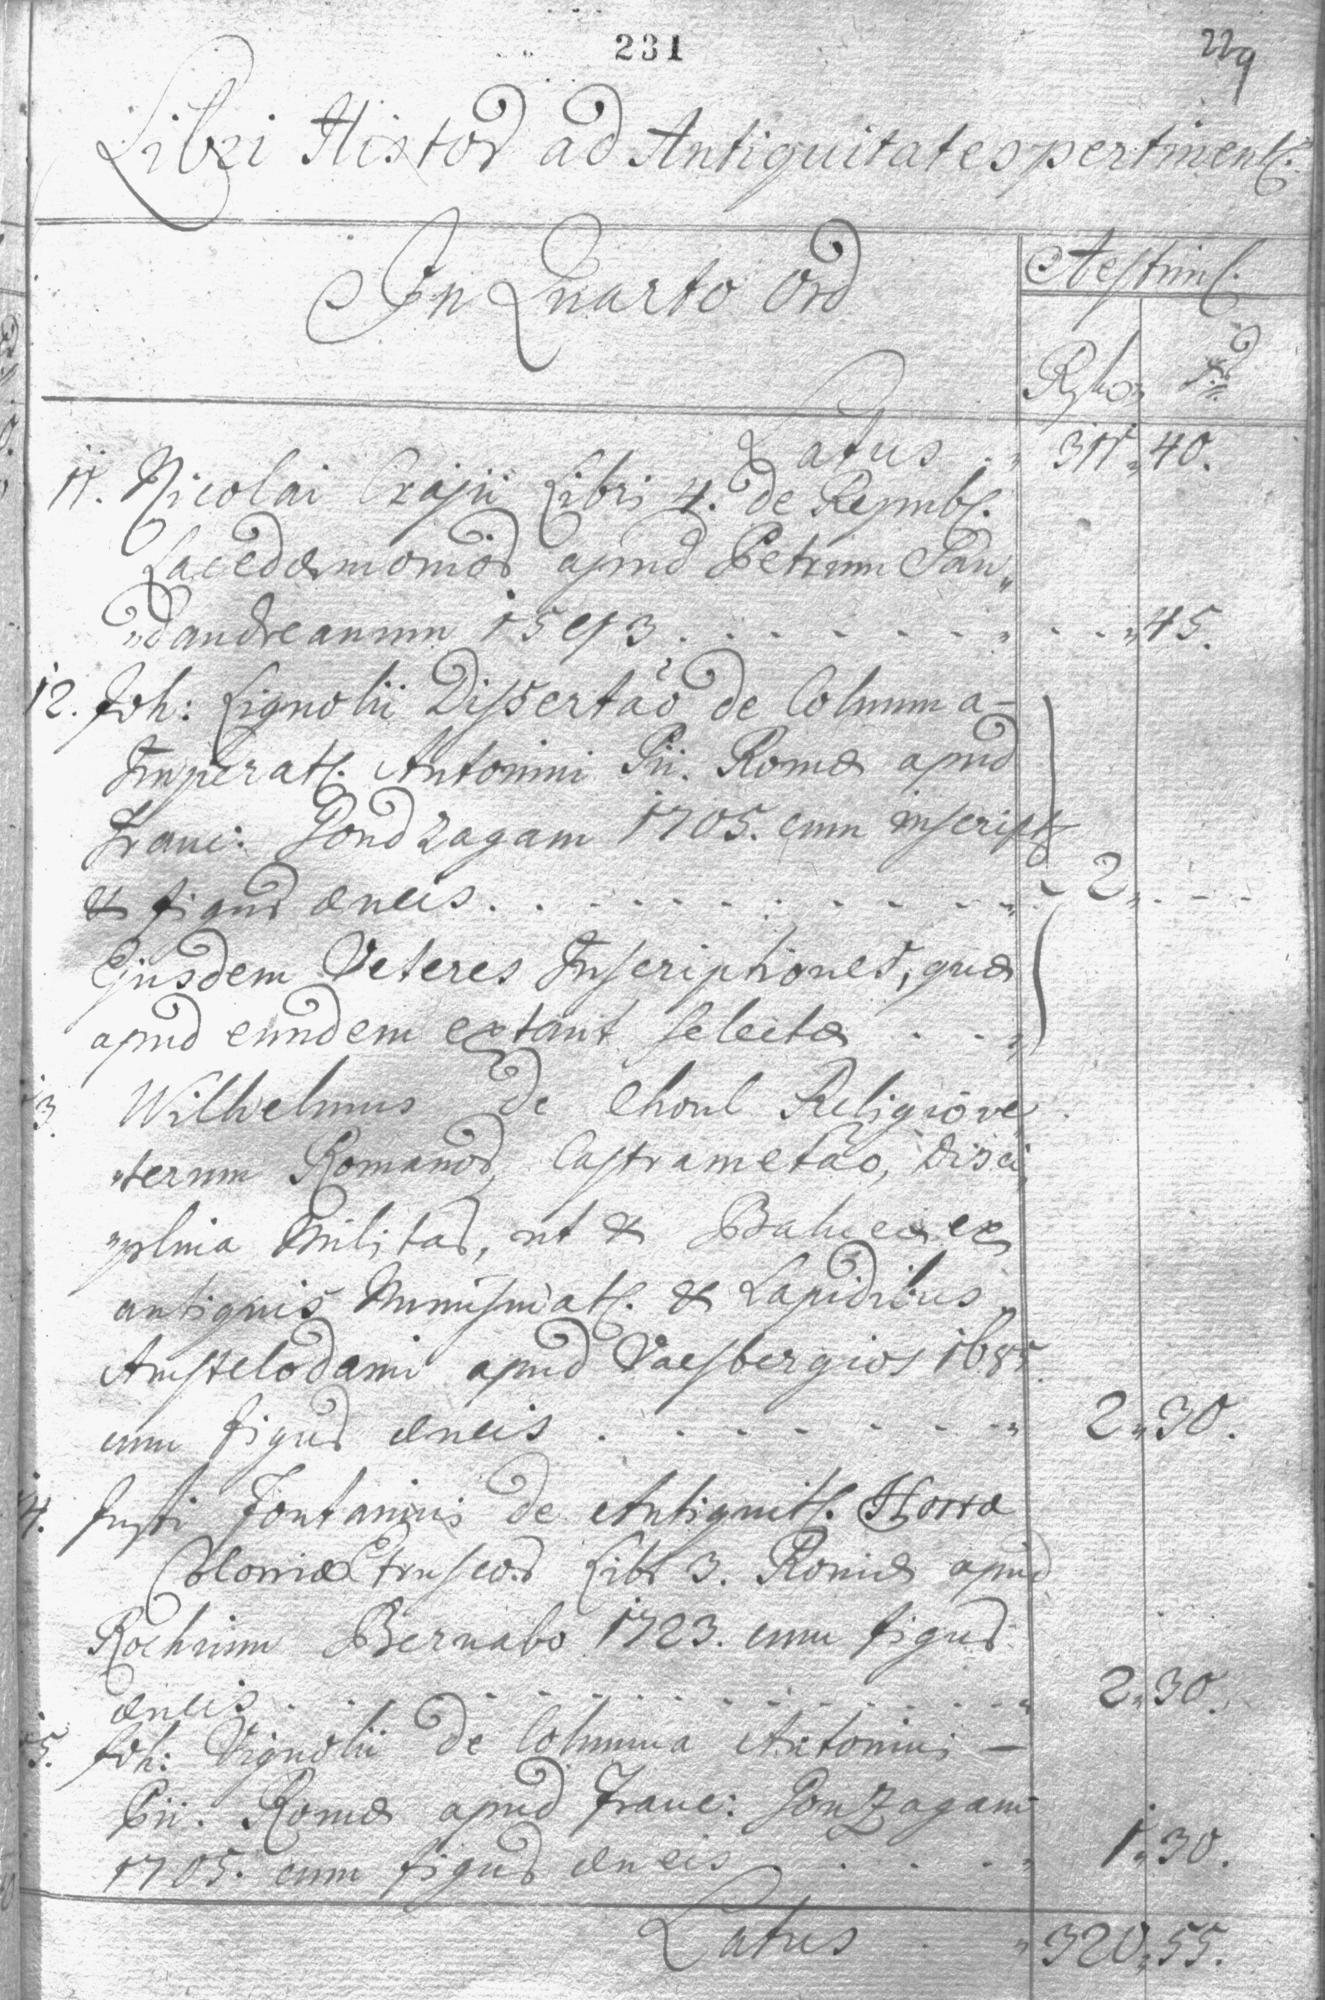 231 229
Libri Histor ad Antiquitates pertinent.
In Quarto Ord
Aestim.
Rfhor xr
Latus 311 40.
11. Nicolai Cragii Libri 4. de Republ.
Lacedæmonior apud Petrum San„
„dandreanum 1593 . . . . . . . . 45.
12. Joh: Lignolii Dissertāō de Columna
Imperat. Antonini Pii. Romæ apud
Franc: Gondzagam 1705. cum inscript
& figur æneis . . . . . . . . . 2 . - -
Ejusdem Veteres Inscriptiones, quæ
apud eundem extant selectæ . . .
13. Wilhelmus de Choul Religiōve
„terum Romanor, Castrametāō, Disci
„plina Militar, ut & Balneæ ex
antiquis Numismat. & Lapidibus
Amstelodami apud Vaesbergios 1685.
cum figur æneis . . . . . . . . 2 30.
14. Justi Fontaninis de Antiquit. Hortæ
Coloniæ Etruscor Libr 3. Romæ apud
Rochum Bernabo 1723. cum figur
æneis . . . . . . . . . . . 2 30.
15. Joh: Vignolii de Columna Antonini –
Pii. Romæ apud Franc: Gonzagam
1705. cum figur æneis . . . . 1 30.
Latus . 320 55.